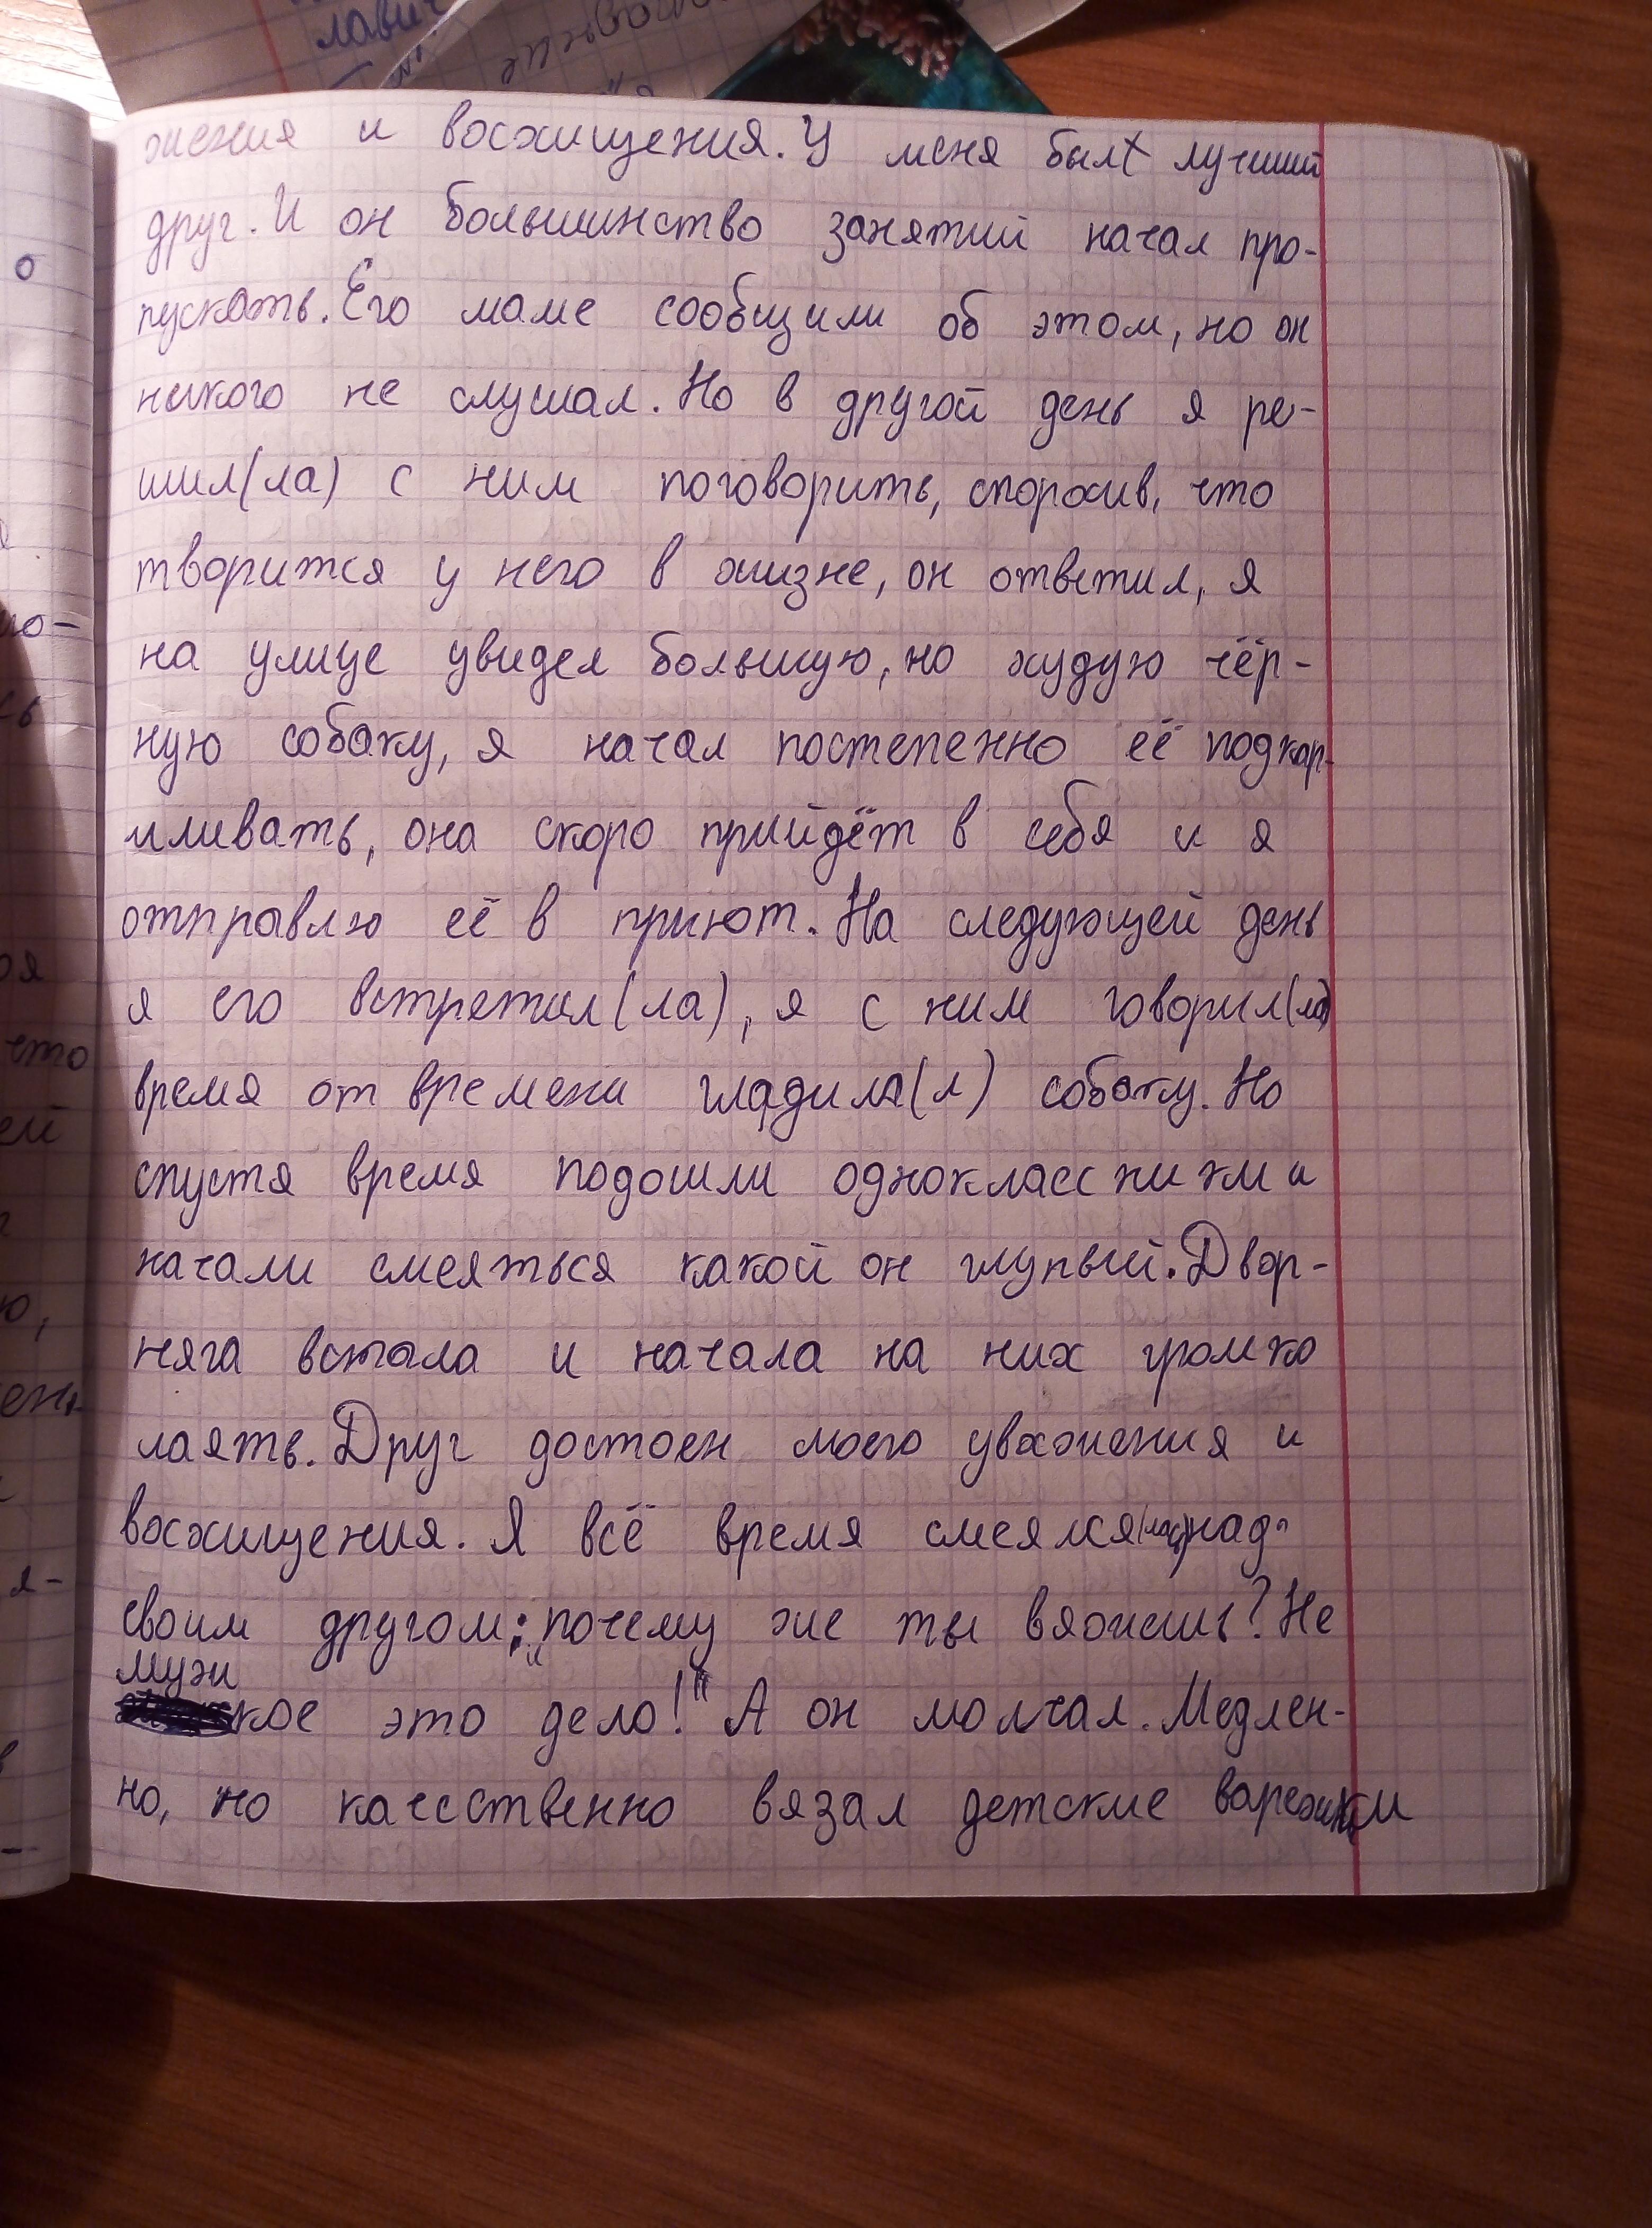 лавич
жения и восхищения. У меня был лучший
друг. И он большинство занятий начал про-
пускать. Его маме сообщили об этом, но он
никого не слушал. Но в другой день я ре-
шил(ла) с ним поговорить, споросив, что
творится у него в жизне, он ответил, я
на улице увидел большую, но худую чёр-
ную собаку, я начал постепенно её подкар-
мливать, она скоро прийдёт в себя и я
отправлю её в приют. На следующей день
я его встретил(ла), я с ним говорил(ла)
время от времени гладила(л) собаку. Но
спустя время подошли одноклассники и
начали смеяться какой он глупый. Двор-
няга встала и начала на них громко
лаять. Друг достоен моего уважения и
восхищения. Я всё время смеялся(лась) над
своим другом: „почему же ты вяжешь? Не
мужкое это дело!" А он молчал. Медлен-
но, но качественно вязал детские варежки
о
но-
сь
оя
что
ей
ю,
ен
я-